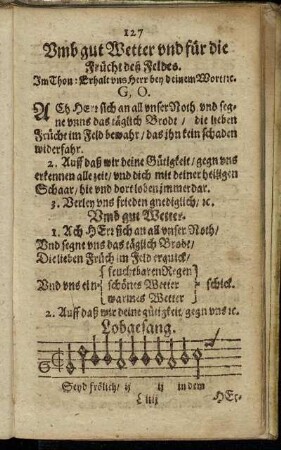 127
Vmb gut Wetter vnd für die
Frücht deß Feldes.
Im Thon: Erhalt vns Herr bey deinem Wort ꝛc.
G. O.
ACh HErr sich an all vnser Noth vnd seg-
ne vnns das täglich Brode / die lieben
Frücht im Feld bewahr / das ihn kein schaden
widerfahr.
2. Auff daß wir deine Gütigkeit / gegn vns
erkennen alle zeit / vnd dich mit deiner heiligen
Schaar / hie vnd dort loben immerdar.
3. Verley vns frieden gnediglich / ꝛc.
Vmb gut Wetter.
1. Ach HErr sich an all vnser Noth /
Vnd segne vns das täglich Brode /
Die lieben Früch im Feld erquick /
Vnd vns ein { feuchtbaren Regen
schönes Wetter } schick.
warmes Wetter
2. Auff daß wir deine gütigkeit / gegn vns ꝛc.
Lobgesang.
Seyd frölich / ij ij in dem
L iiij HEr-